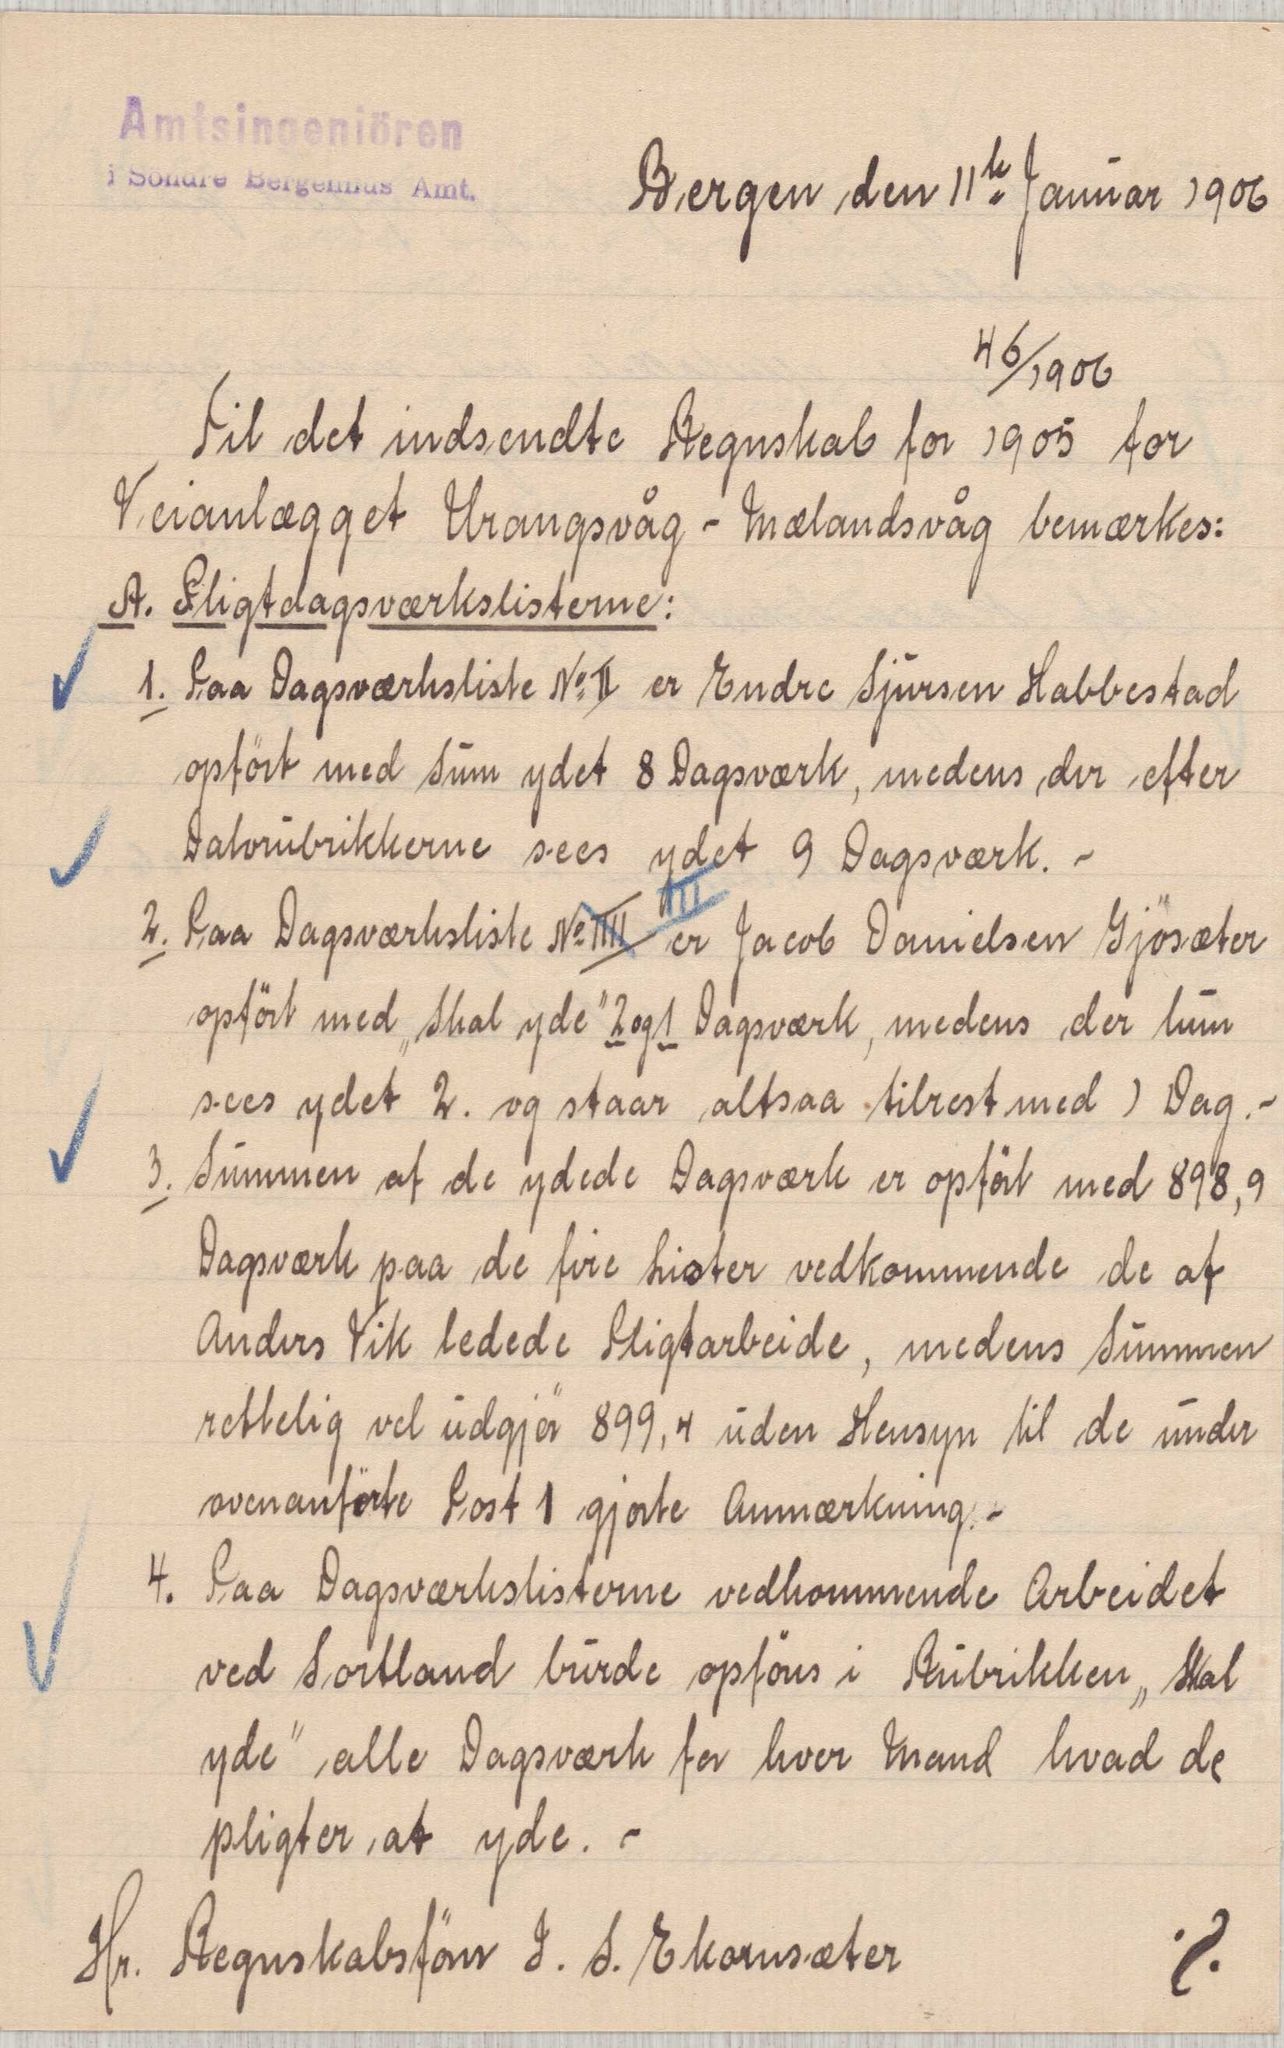 Amtsingeniören
i Söndre Bergenhus Amt.
Bergen den 11te Januar 1906
46/1906
Til det indsendte Regnskab for 1905 for
Veianlægget Urangsvåg - Mælandsvåg bemærkes:
A. Pligtdagsværkslisterne:
1. Paa Dagsværksliste No. II er Endre Sjursen Habbestad
opført med Sum ydet 8 Dagsværk, medens der efter
Datorubrikkerne sees ydet 9 Dagsværk. -
III
2. Paa Dagsværksliste No IIII er Jacob Danielsen Gjösæter
opfört med „Skal yde" 2 og 1 Dagsværk, medens der kun
sees ydet 2. og staar altsaa tilrest med 1 Dag. -
3. Summen af de ydede Dagsværk er opfört med 898,9
Dagsværk paa de fire Lister vedkommende de af
Anders Vik ledede Pligtarbeide, medens Summen
rettelig vel udgjör 899,4 uden Hensyn til de under
ovenanförte Post 1 gjorte Anmærkning. -
4. Paa Dagsværkslisterne vedkommende Arbeidet
ved Sortland burde opföres i Rubrikken „Skal
yde" alle Dagsværk for hver Mand hvad de
pligter at yde. -
Hr. Regnskabsförer J. S. Ekornsæter
./.